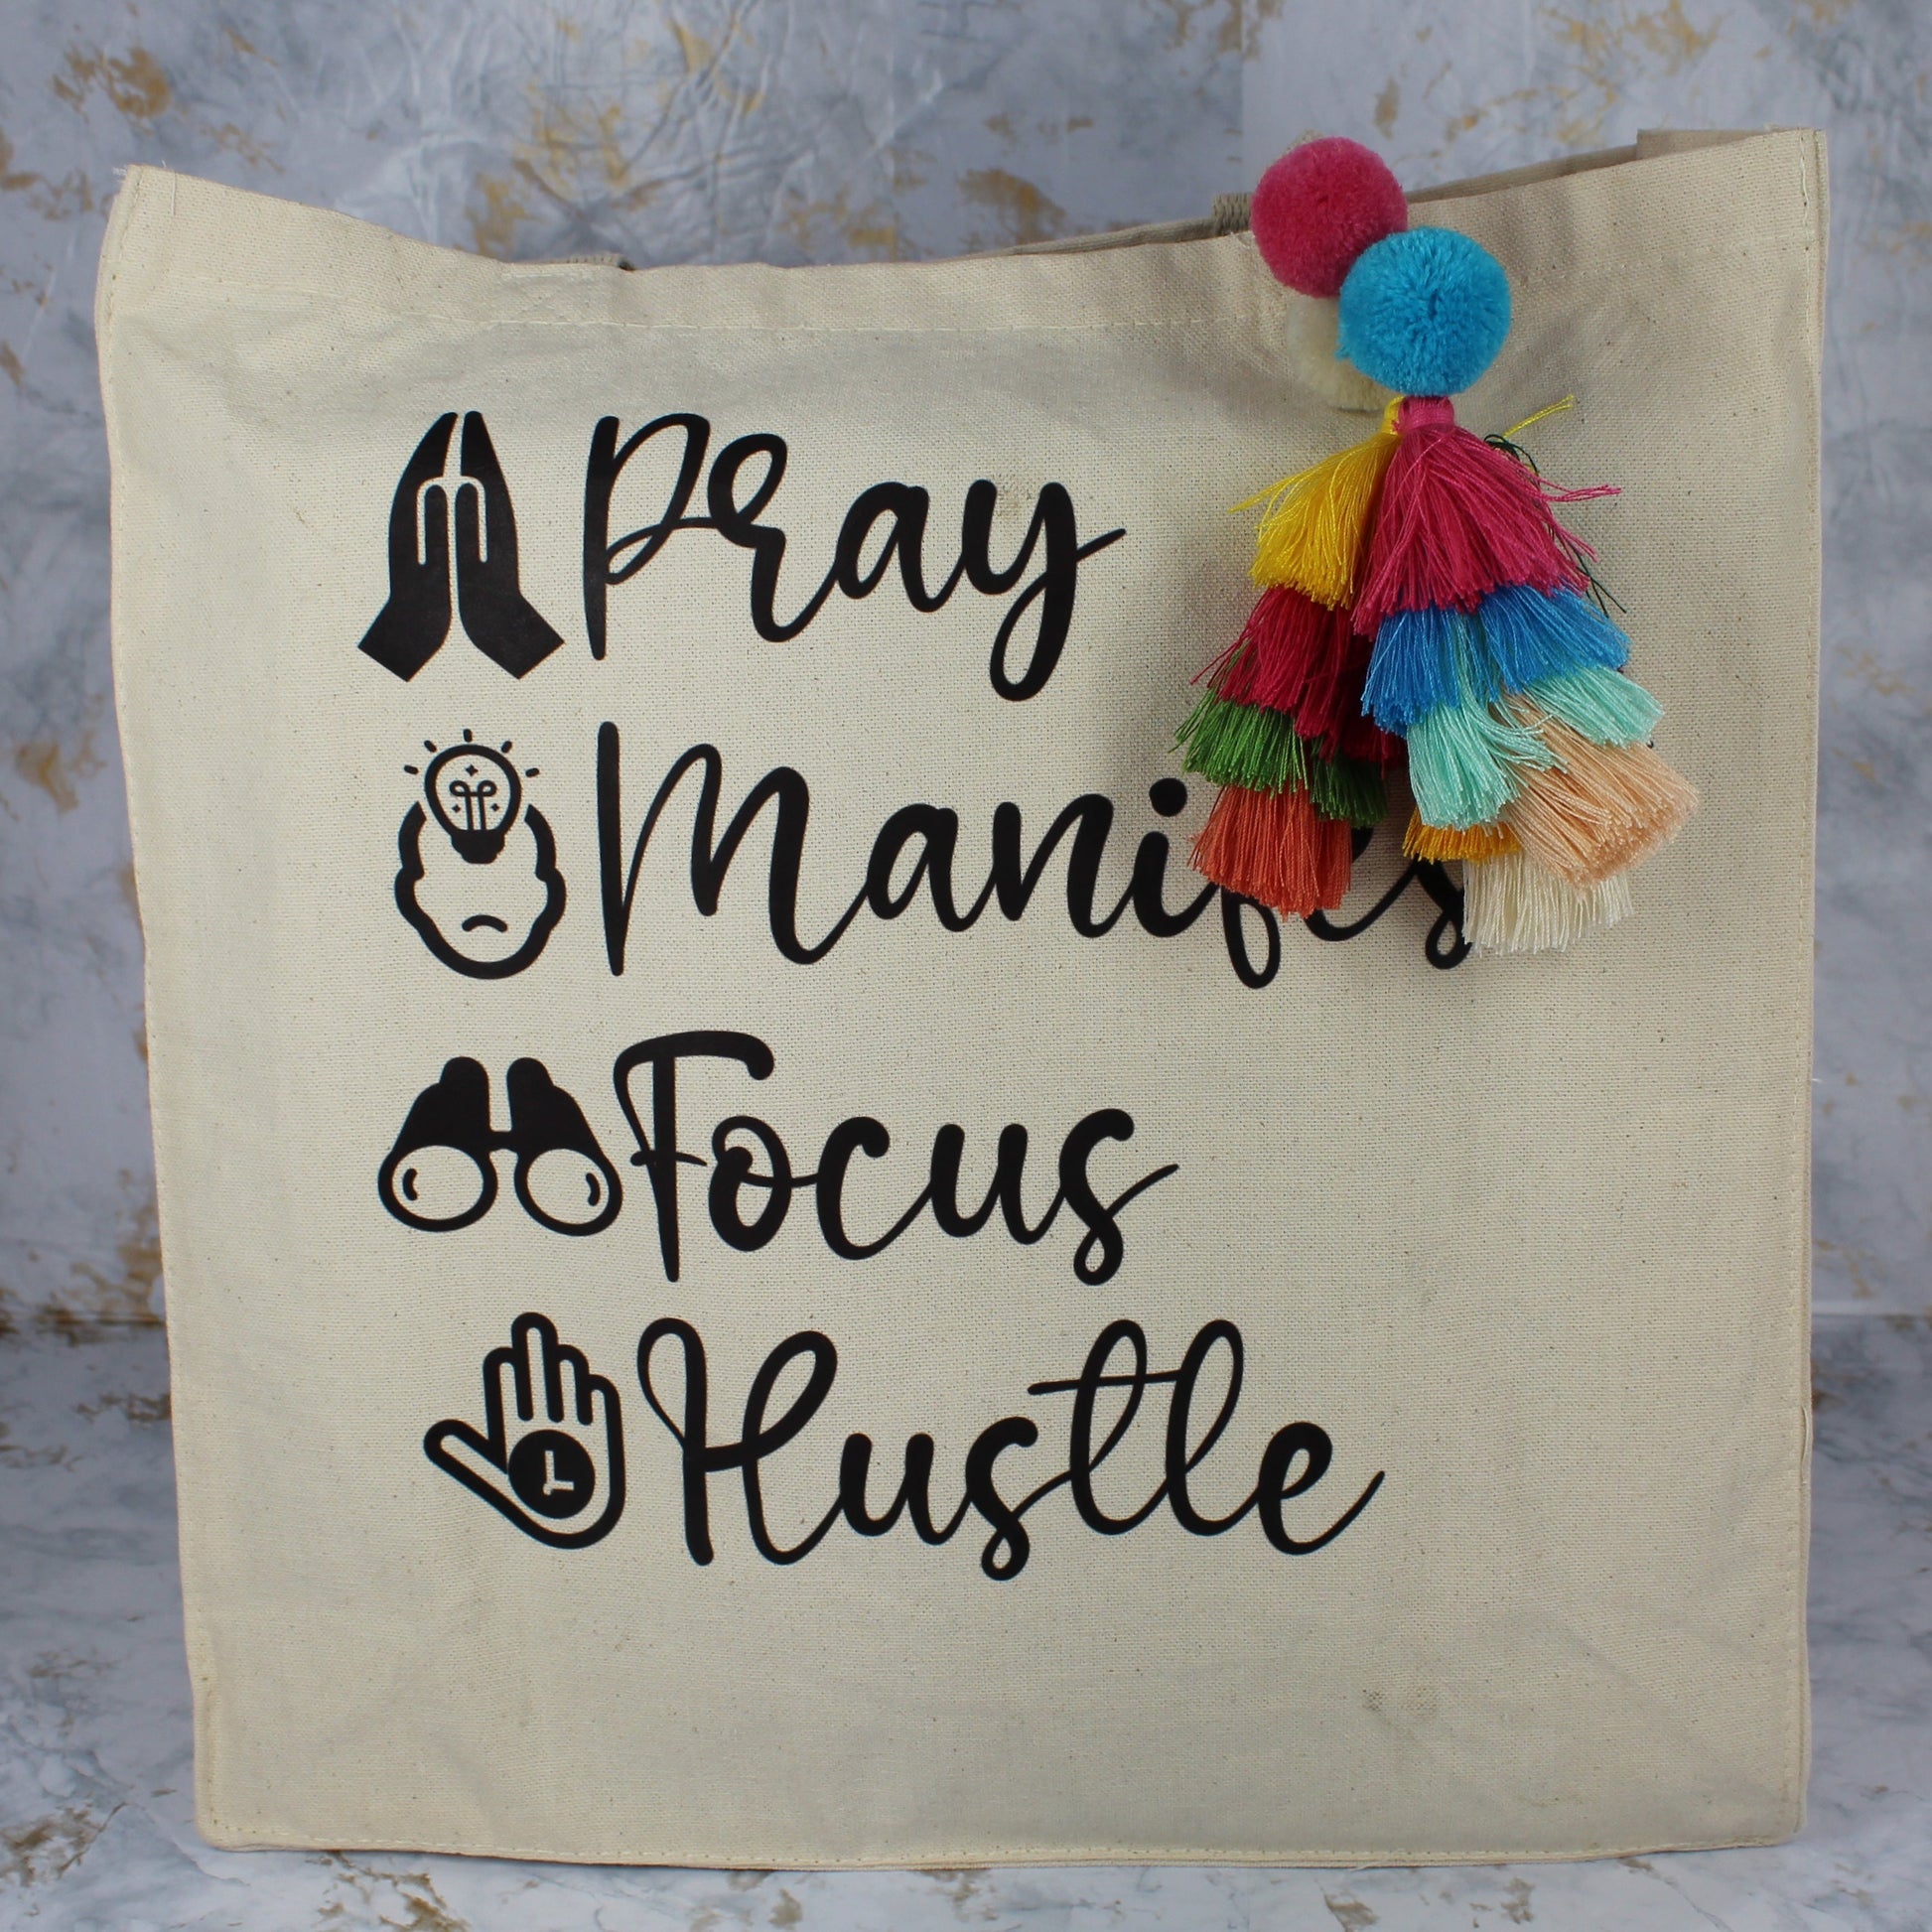 Pray
Manifes
Focus
Hustle